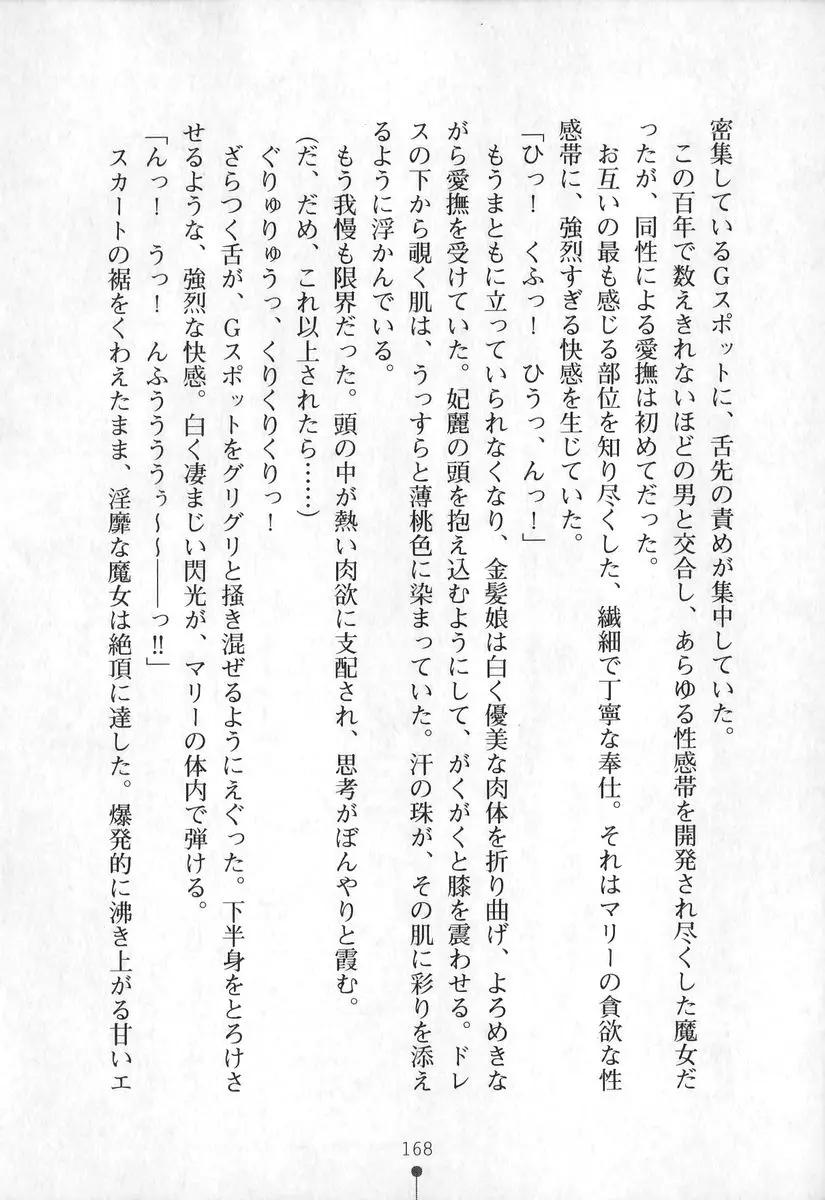 密集しているGスポットに、舌先の責めが集中していた。
　この百年で数えきれないほどの男と交合し、あらゆる性感帯を開発され尽くした魔女だ
ったが、同性による愛撫は初めてだった。
　お互いの最も感じる部位を知り尽くした、繊細で丁寧な奉仕。それはマリーの貪欲な性
感帯に、強烈すぎる快感を生じていた。
「ひっ！　くふっ！　ひうっ、んっ！」
　もうまともに立っていられなくなり、金髪娘は白く優美な肉体を折り曲げ、よろめきな
がら愛撫を受けていた。妃麗の頭を抱え込むようにして、がくがくと膝を震わせる。ドレ
スの下から覗く肌は、うっすらと薄桃色に染まっていた。汗の珠が、その肌に彩りを添え
るように浮かんでいる。
　もう我慢も限界だった。頭の中が熱い肉欲に支配され、思考がぼんやりと霞む。
（だ、だめ、これ以上されたら……）
　ぐりゅりゅうっ、くりくりくりっ！
　ざらつく舌が、Gスポットをグリグリと掻き混ぜるようにえぐった。下半身をとろけさ
せるような、強烈な快感。白く凄まじい閃光が、マリーの体内で弾ける。
「んっ！　うっ！　んふうううぅ〜〜――っ!!」
　スカートの裾をくわえたまま、淫靡な魔女は絶頂に達した。爆発的に沸き上がる甘いエ
168